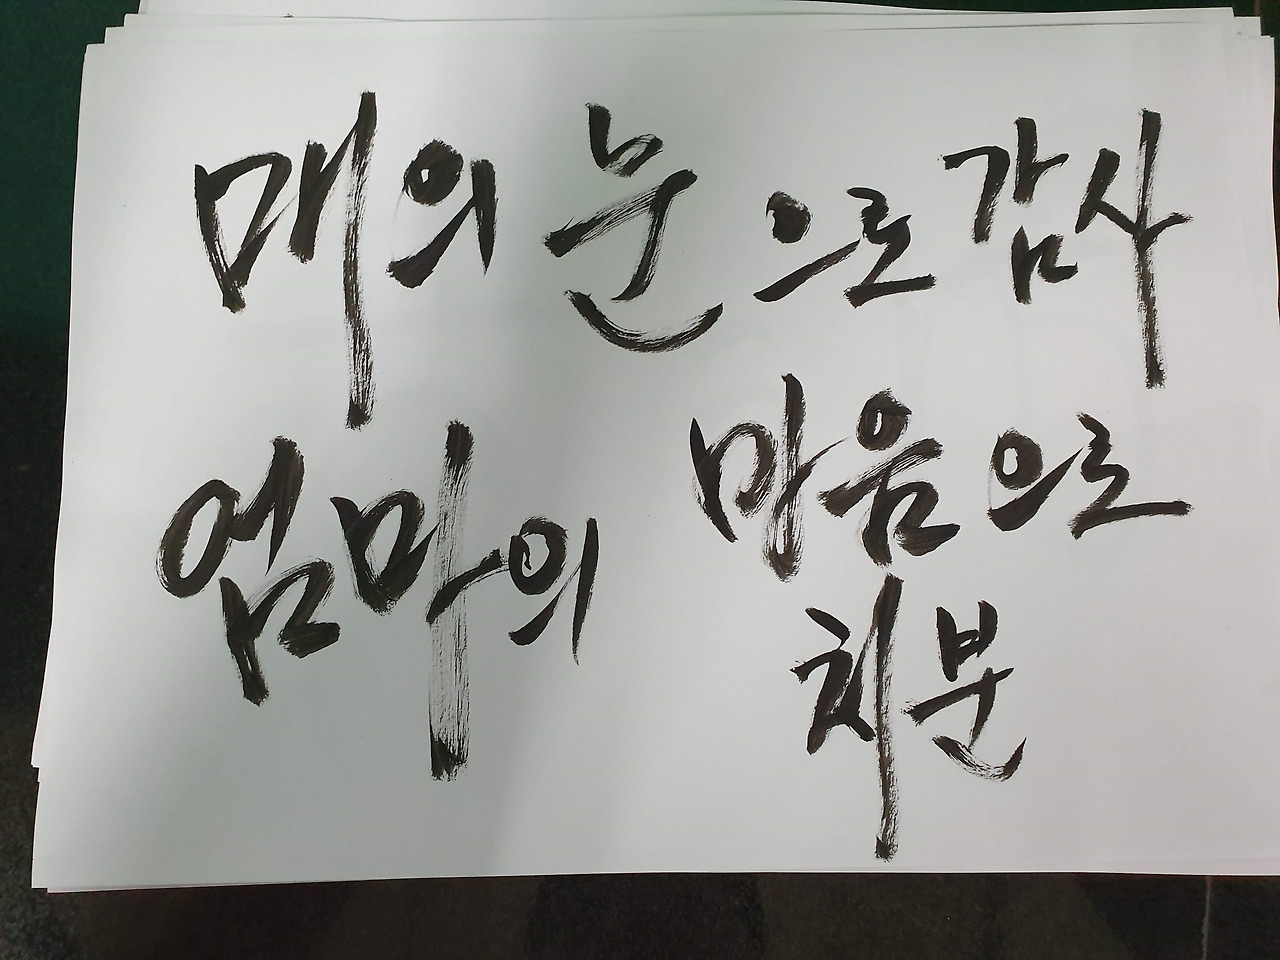 매의 눈으로 감사
엄마의 마음으로
처분